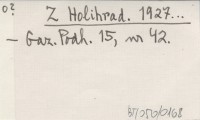 o?
Z Holihrad. 1927...
- Gaz. Podh. 15, nr 42.
57/050/0168